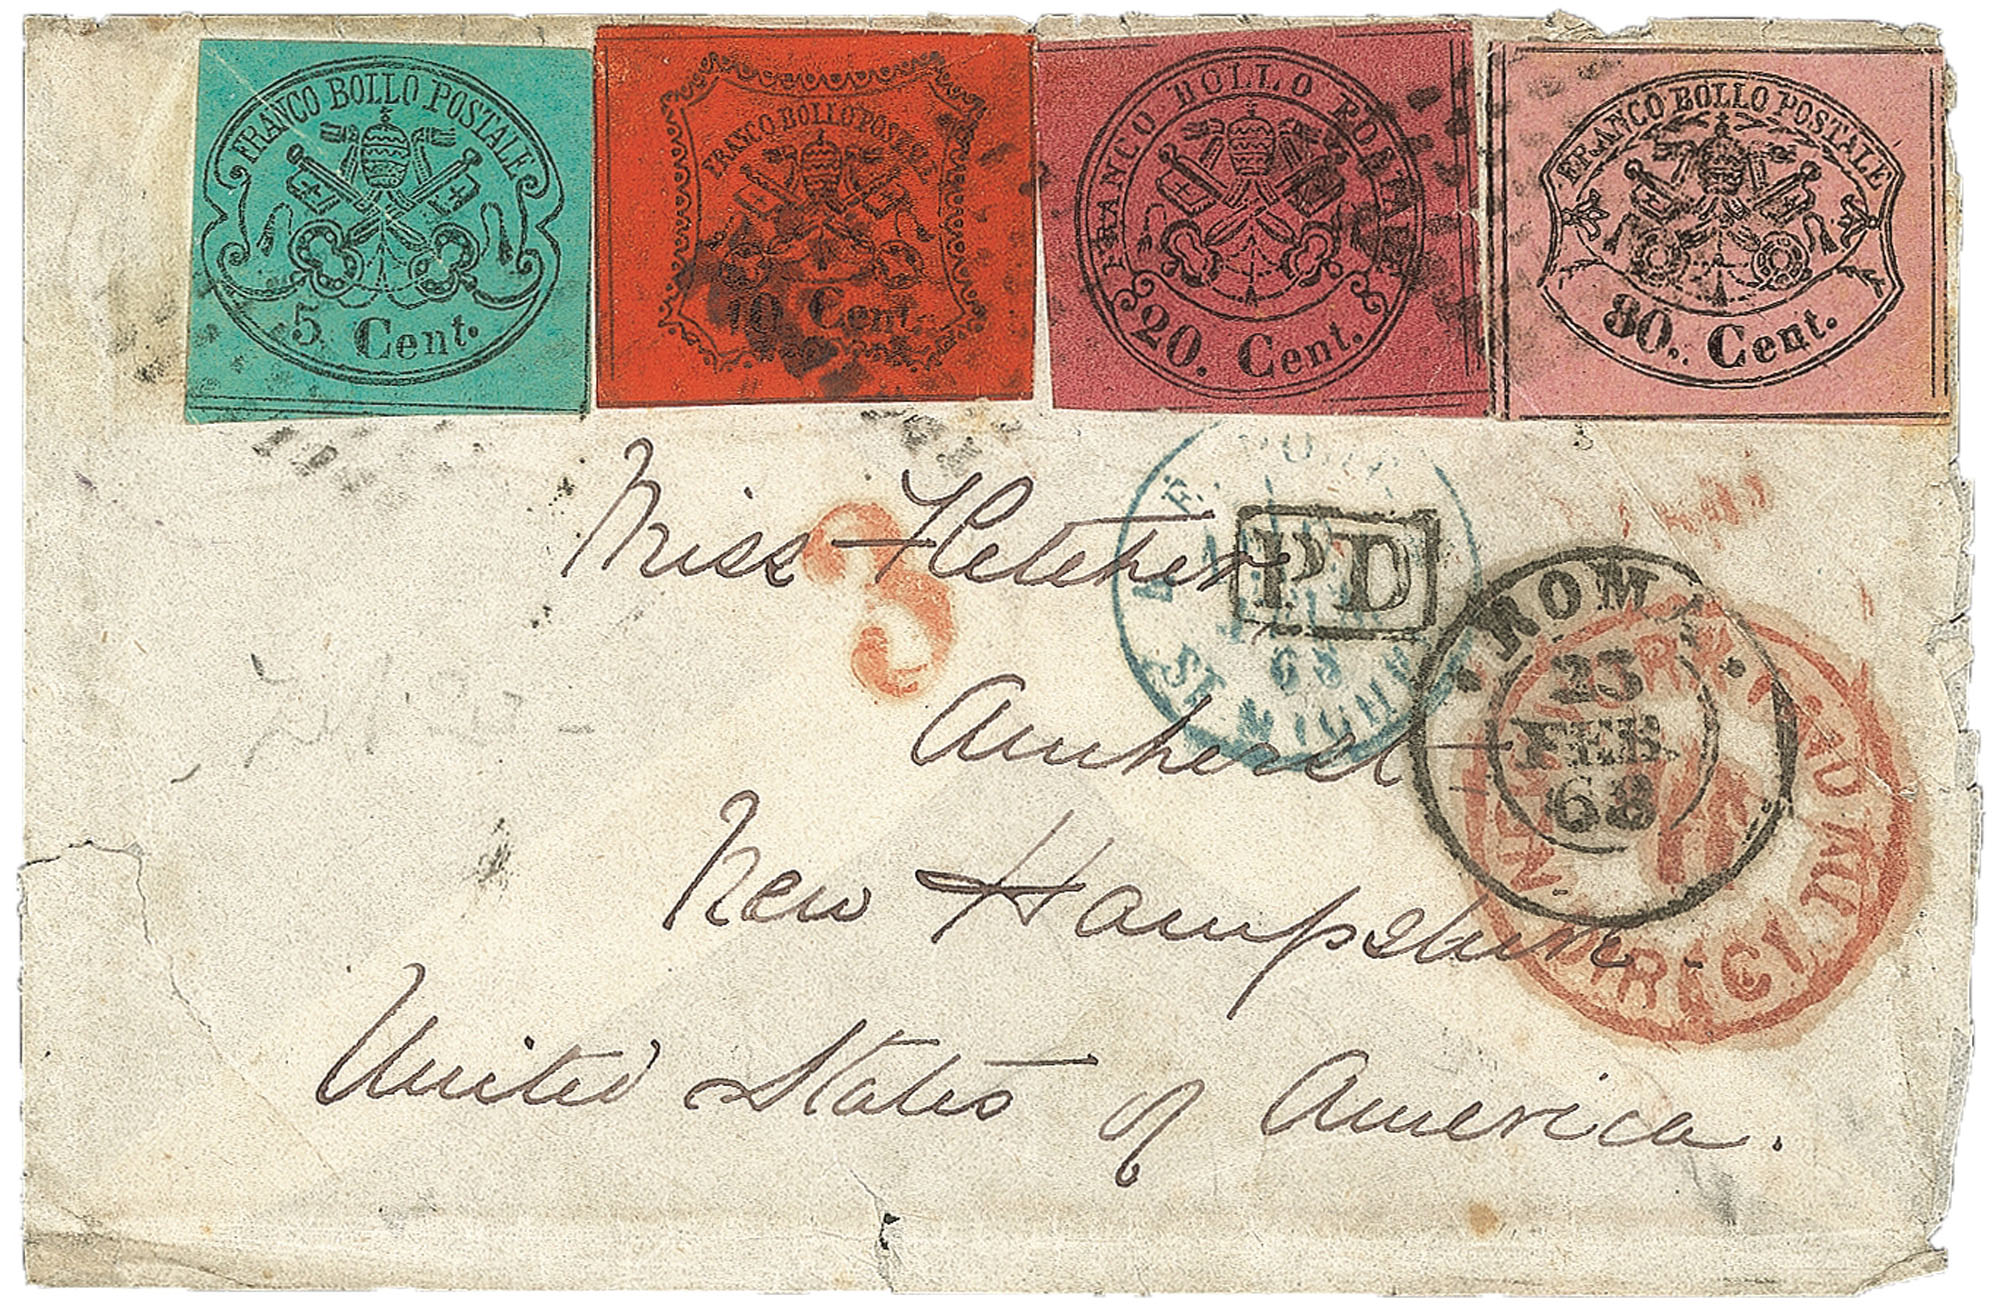 FRANCO BOLLO POSTALE
5 Cent.
FRANCO BOLLO POSTALE
10 Cent.
FRANCO BOLLO POSTALE
20. Cent.
FRANCO BOLLO POSTALE
80.. Cent.
Miss Fletcher
3
PD
ROMA
23
FEB.
68
68
ST. MICHEL
Amherst
New Hampshire.
DIRECT
United States of America.